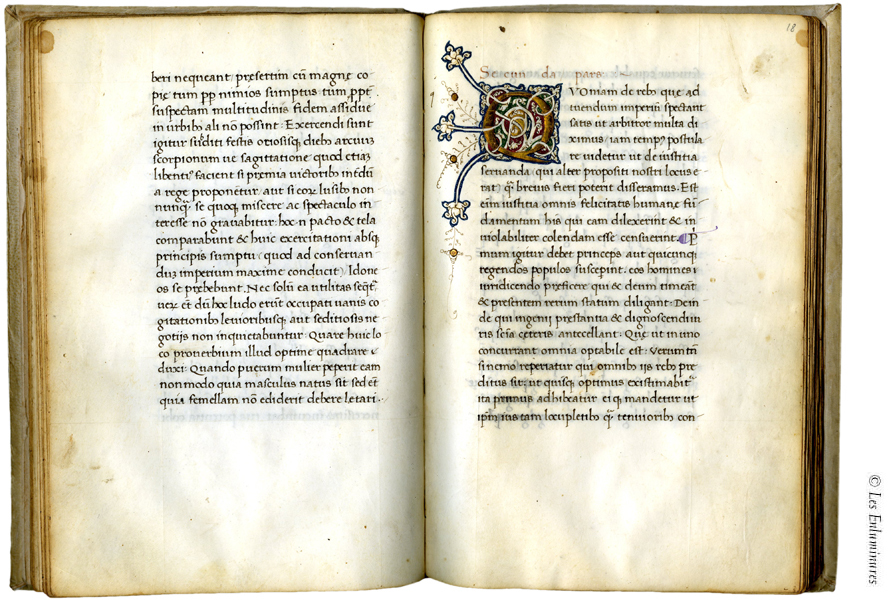 beri nequeant: presertim cũ magne co-
pie tum pp nimios sumptus tum ppt
suspectam multitudinis fidem assidue
in urbibꝰ ali nõ possint: Exercendi sunt
igitur subditi festis otiosisq; diebꝰ arcuũ
scorpionum ue sagittatione quod etiaʒ
libentiꝰ facient si premia uictoribꝰ inedũ
a rege proponẽtur aut si eoꝝ lusibꝰ non
nunq̃ se quoq; miscere ac spectaculo in-
teresse nõ grauabitur: hoc n pacto & tela
comparabunt & huic exercitationi absq;
principis sumptu: quod ad conseruan-
dũ imperium maxime conducit: Idone
os se prebebunt. Nec solũ ea utilitas seq̃t
ueꝝ et dũ hoc ludo erũt occupati uanis co
gitationibꝰ leuioribusq; aut seditiosis ne-
gotijs non inquietabuntur: Quare huic lo
co prouerbium illud optime quadrare
duxi: Quando puerum mulier peperit eam
non modo quia masculus natus sit sed et
quia femellam nõ ediderit debere letari.
18
Secunda pars
QVOniam de rebꝰ que ad
tuendum imperiũ spectant
satis ut arbitror multa di
ximus: iam tempꝰ postula
re uidetur ut de iustitia
seruanda qui alter propositi nostri locus e-
rat q̃ breuius fieri poterit disseramus. Est
eñ iustitia omnis felicitatis humane fũ-
damentum his qui eam dilexerint & in
uiolabiliter colendam esse censuerint. P
mum igitur debet princeps aut quicunq;
regendos populos susceperint. eos homines i
iuridicendo preficere qui & deum timeãt
& presentem rerum statum diligant: Dein
de qui ingenij prestantia & dignoscendi iu
ris sciã ceteris antecellant: Que ut in uno
concurrant omnia optabile est: Verum tñ
si nemo reperiatur qui omnibꝰ ijs rebꝰ pre
ditus sit: ut quisq; optimus existimabit
ita primus adhibeatur ei q; mandetur ut
ipm ius tam locupletibꝰ q̃ tenuioribꝰ con-
© Les Enluminures